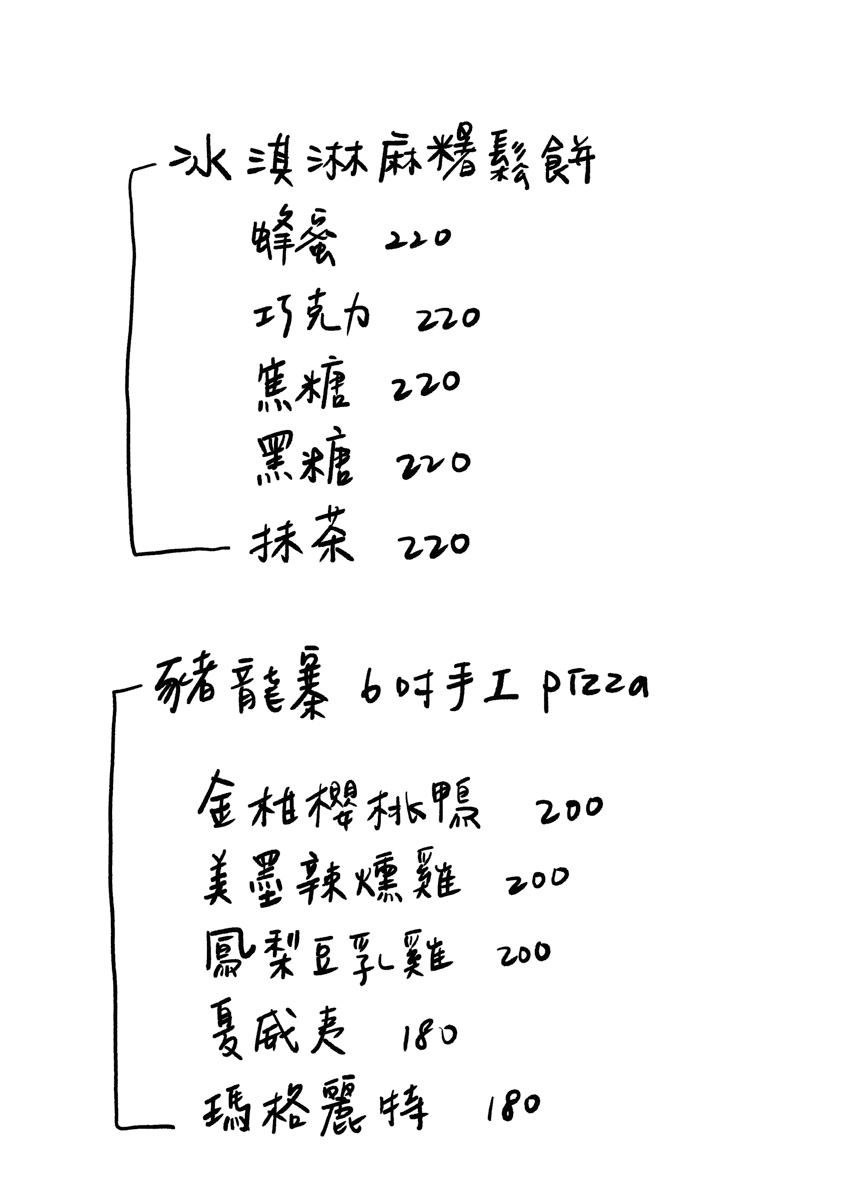 冰淇淋麻糬鬆餅
蜂蜜 220
巧克力 220
焦糖 220
黑糖 220
抹茶 220
豬龍寨 6吋手工 pizza
金柑櫻桃鴨 200
美墨辣燻雞 200
鳳梨豆乳雞 200
夏威夷 180
瑪格麗特 180